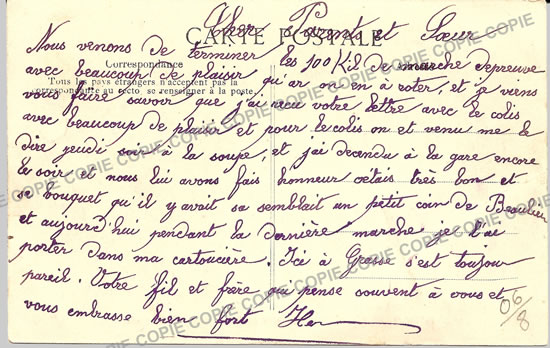 Cher Parents et Sœur
CARTE POSTALE
Nous venons de terminer les 100 Kil de marche d'epreuve
Correspondance
avec beaucoup de plaisir qu'ar on en à roter, et je viens
Tous les pays étrangers n'acceptent pas la
correspondance au recto, se renseigner à la poste.
vous faire savoir que j'ai reçu votre lettre avec le colis
avec beaucoup de plaisir et pour le colis on et venu me le
dire jeudi soir à la soupe, et j'ai decendu à la gare encore
le soir et nous lui avons fais honneur cétais très bon et
se bouquet qu'il y avait sa semblait un petit coin de Beaulieu
et aujourd'hui pendant la dernière marche je l'ai
porter dans ma cartoucière. Ici à Grasse s'est toujour
pareil. Votre fil et frère qui pense souvent à vous et
vous embrasse bien fort
06/8
COPIE COPIE COPIE COPIE COPIE COPIE COPIE